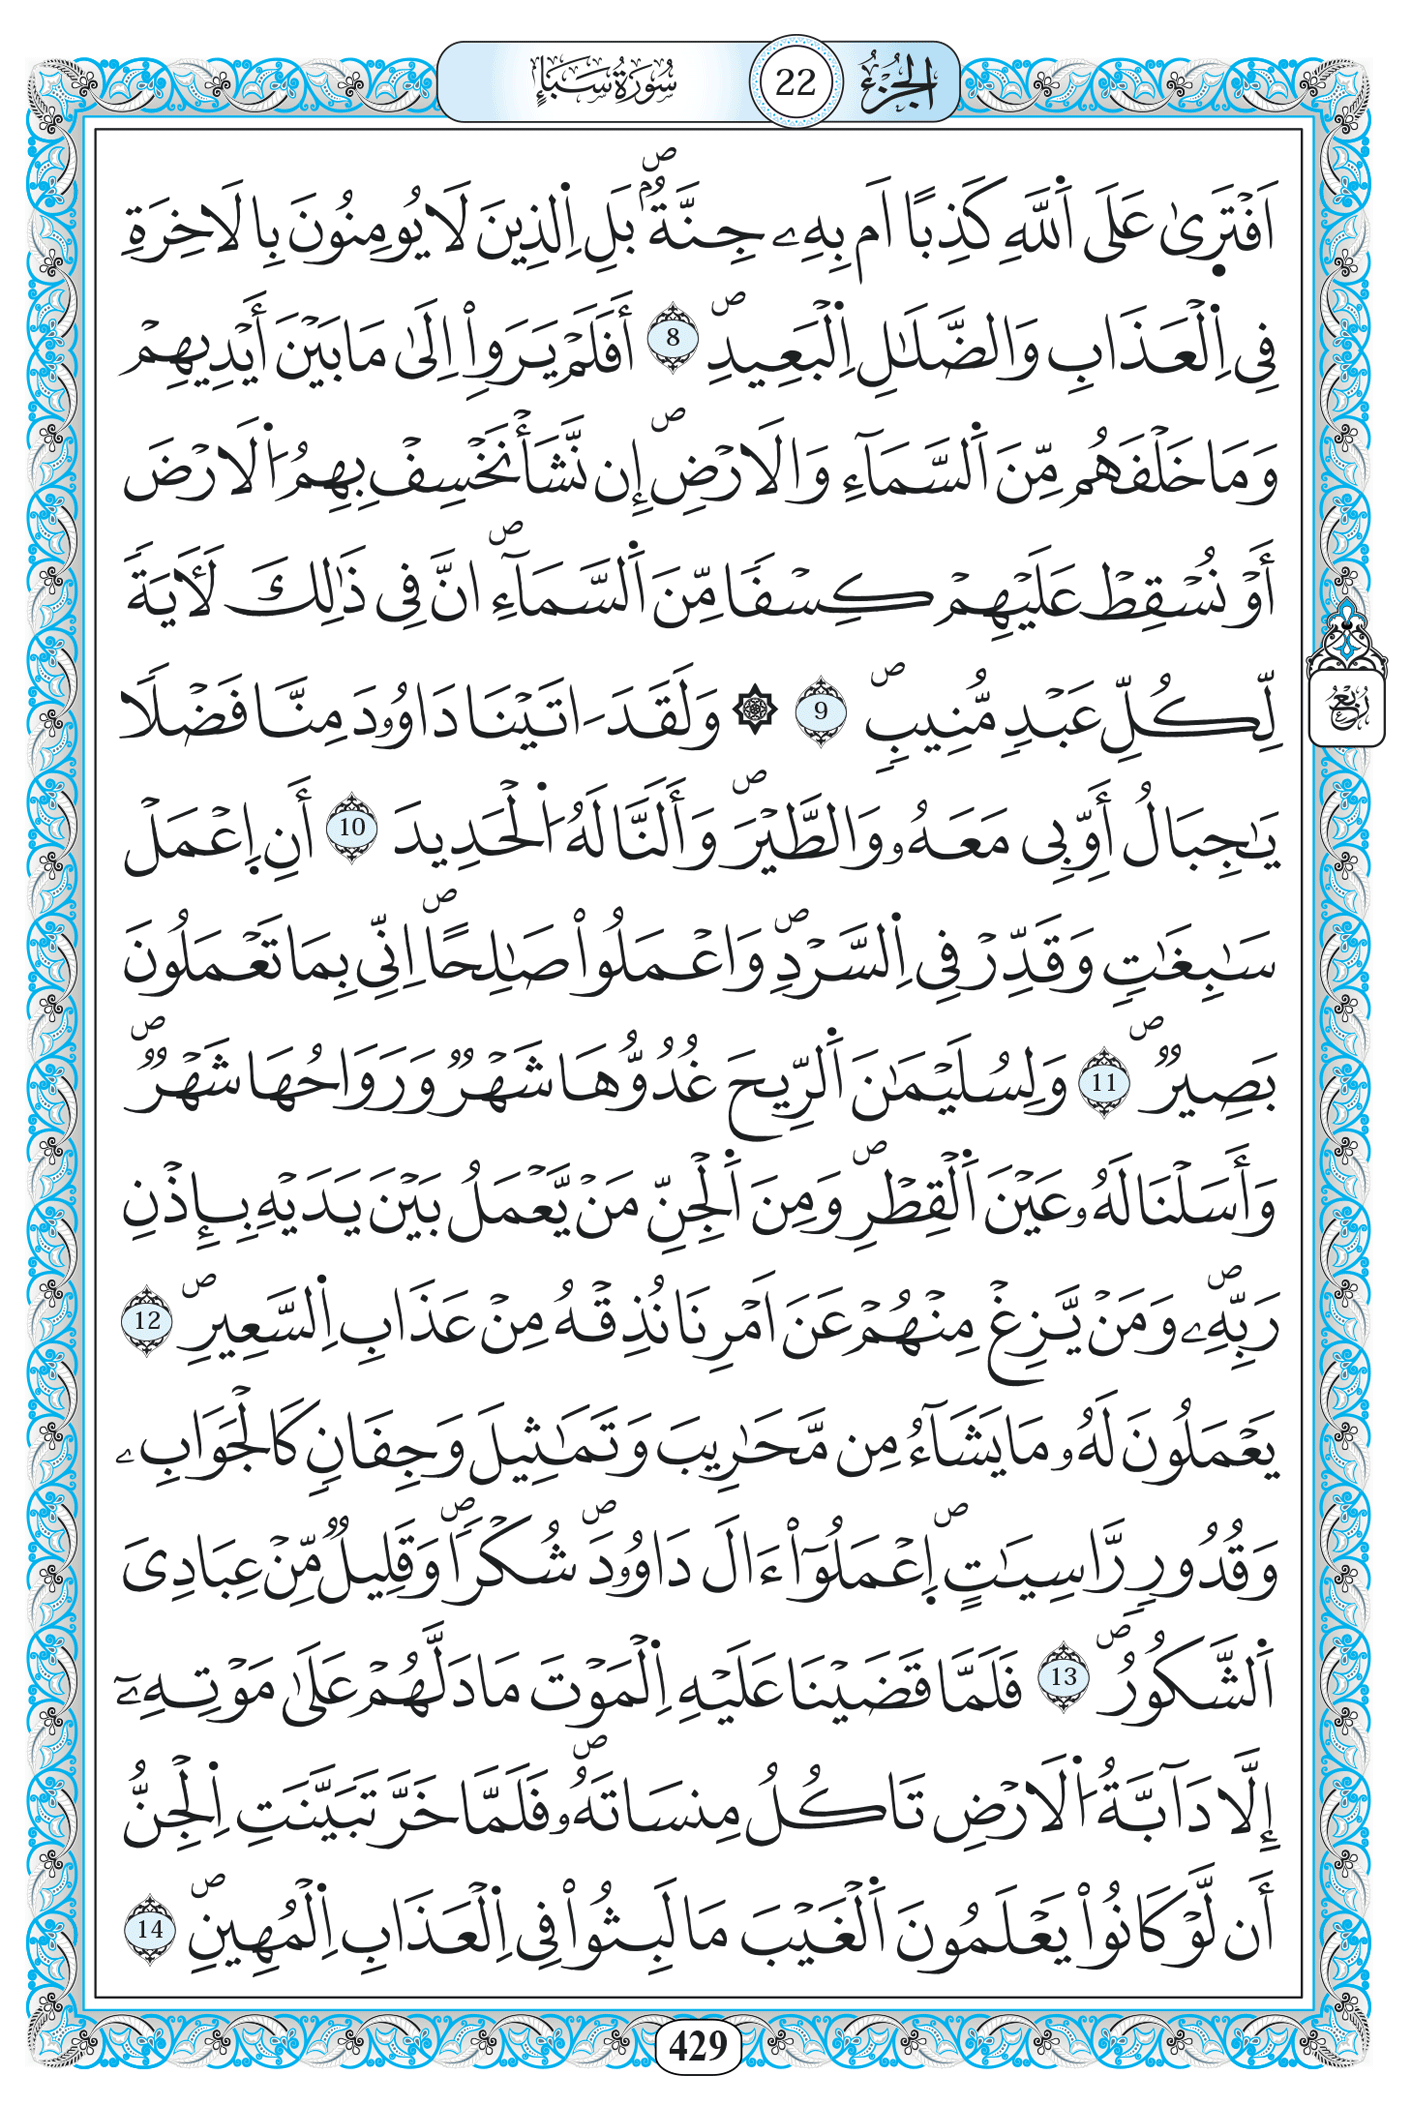 الجزء 22 سورة سبإ
اَفْتَرٜىٰ عَلَى اَ۬للَّهِ كَذِباً اَم بِهِۦ جِنَّةُۢ بَلِ اِ۬لذِينَ لَا يُومِنُونَ بِالَاخِرَةِ
فِى اِ۬لْعَذَابِ وَالضَّلَٰلِ اِ۬لْبَعِيدِ 8 أَفَلَمْ يَرَوِاْ اِلَىٰ مَا بَيْنَ أَيْدِيهِمْ
وَمَا خَلْفَهُم مِّنَ اَ۬لسَّمَآءِ وَالَارْضِ إِن نَّشَأْ نَخْسِفْ بِهِمُ اُ۬لَارْضَ
أَوْ نُسْقِطْ عَلَيْهِمْ كِسْفاً مِّنَ اَ۬لسَّمَآءِ انَّ فِى ذَٰلِكَ لَأٓيَةً
لِّكُلِّ عَبْدٍ مُّنِيبٍ 9 ۞ وَلَقَدَ اٰتَيْنَا دَاوُۥدَ مِنَّا فَضْلًا
يَٰجِبَالُ أَوِّبِى مَعَهُۥ وَالطَّيْرَ وَأَلَنَّا لَهُ اُ۬لْحَدِيدَ 10 أَنِ اِعْمَلْ
سَٰبِغَٰتٍ وَقَدِّرْ فِى اِ۬لسَّرْدِ وَاعْمَلُواْ صَٰلِحاً اِنِّى بِمَا تَعْمَلُونَ
بَصِيرٌ 11 وَلِسُلَيْمَٰنَ اَ۬لرِّيحَ غُدُوُّهَا شَهْرٌ وَرَوَاحُهَا شَهْرٌ
وَأَسَلْنَا لَهُۥ عَيْنَ اَ۬لْقِطْرِ وَمِنَ اَ۬لْجِنِّ مَنْ يَّعْمَلُ بَيْنَ يَدَيْهِ بِإِذْنِ
رَبِّهِۦ وَمَنْ يَّزِغْ مِنْهُمْ عَنَ اَمْرِنَا نُذِقْهُ مِنْ عَذَابِ اِ۬لسَّعِيرِ 12
يَعْمَلُونَ لَهُۥ مَا يَشَآءُ مِن مَّحَٰرِيبَ وَتَمَٰثِيلَ وَجِفَانٍ كَالْجَوَابِۦ
وَقُدُورٍ رَّاسِيَٰتٍ اِعْمَلُوٓاْ ءَالَ دَاوُۥدَ شُكْراً وَقَلِيلٌ مِّنْ عِبَادِىَ
اَ۬لشَّكُورُ 13 فَلَمَّا قَضَيْنَا عَلَيْهِ اِ۬لْمَوْتَ مَا دَلَّهُمْ عَلَىٰ مَوْتِهِۦٓ
إِلَّا دَآبَّةُ اُ۬لَارْضِ تَاكُلُ مِنسَاتَهُۥ فَلَمَّا خَرَّ تَبَيَّنَتِ اِ۬لْجِنُّ
أَن لَّوْ كَانُواْ يَعْلَمُونَ اَ۬لْغَيْبَ مَا لَبِثُواْ فِى اِ۬لْعَذَابِ اِ۬لْمُهِينِ 14
ربع
429